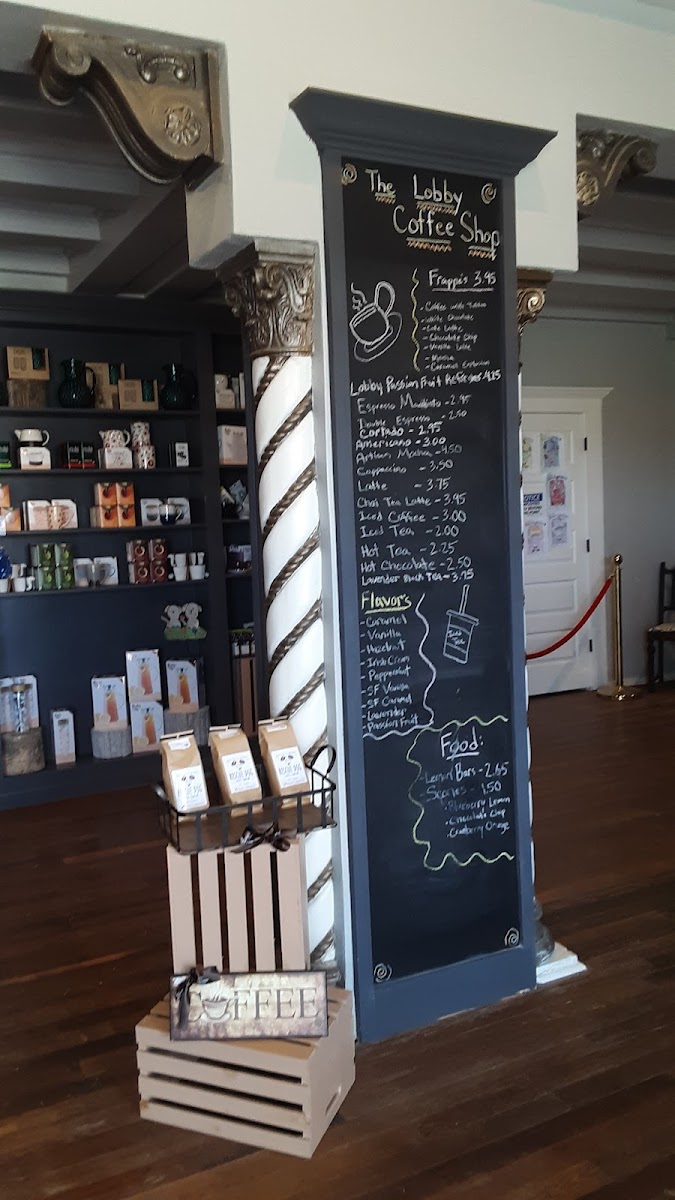 The Lobby
Coffee Shop
Frappe's 3.95
- White Chocolate
- Chocolate Chip
- Mocha
- Caramel Explosion
Lobby Passion Fruit Refresher 4.25
Espresso Macchiato - 2.95
Double Espresso - 2.50
Cortado - 2.95
Americano - 3.00
Artisan Mocha - 4.50
Cappuccino - 3.50
Latte - 3.75
Chai Tea Latte - 3.95
Iced Coffee - 3.00
Iced Tea - 2.00
Hot Tea - 2.25
Hot Chocolate - 2.50
Lavender Tea - 3.75
Flavors
- Caramel
- Vanilla
- Hazelnut
- Irish Cream
- Peppermint
- SF Vanilla
- SF Caramel
- Lavender
- Passion Fruit
Iced
Tea
Food:
- Lemon Bars - 2.65
- Scones - 1.50
. Blueberry Lemon
. Chocolate Chip
. Cranberry Orange
NOTICE
COFFEE